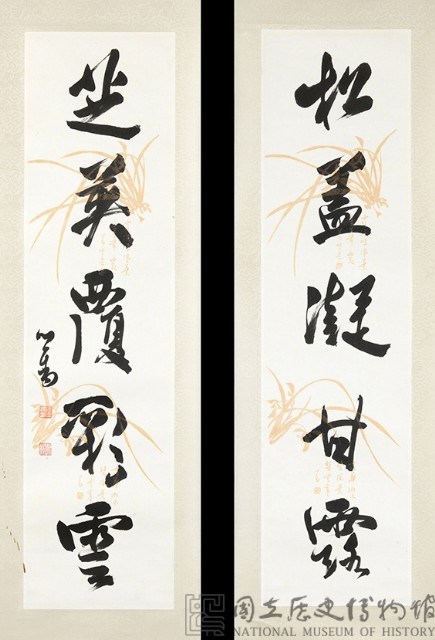 松盖凝甘露
芝英覆彩雲
心畬
國立歷史博物館
NATIONAL MUSEUM OF HISTORY